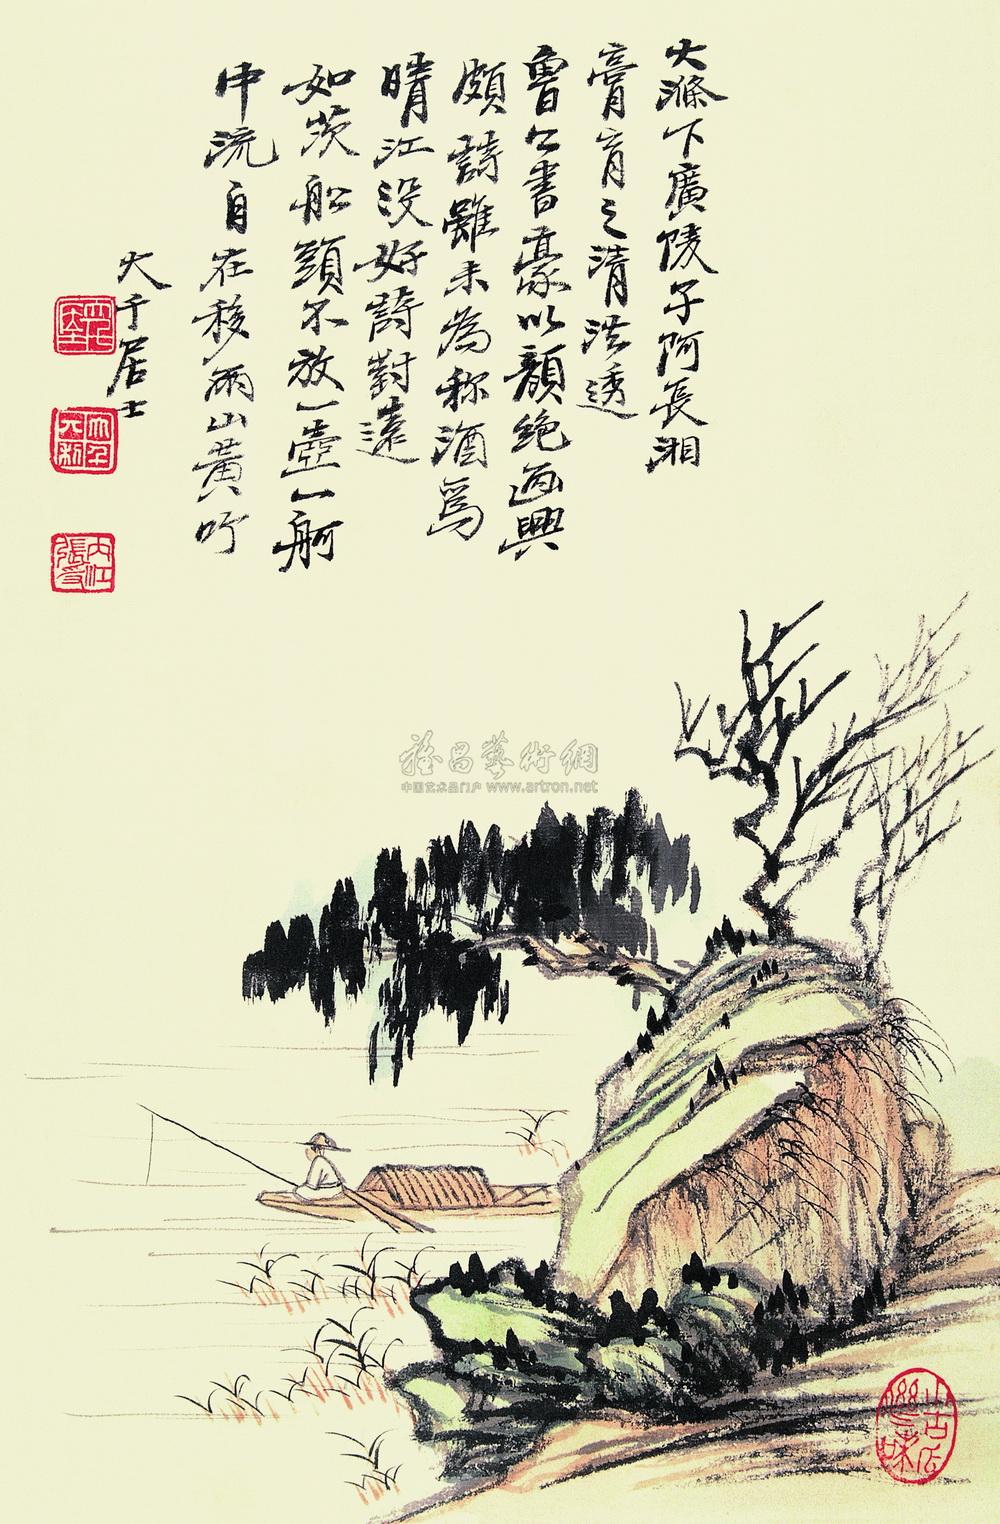 大滌下廣陵子阿長湘
膏肓之清湛透
魯公書豪以顏絶画興
頗詩雖未為称酒為
晴江没好詩對遠
如茨船頭不放一壺一舸
中流自在移兩山黄叶
大千居士
大千
内江張爰
中国艺术品门户 www.artron.net